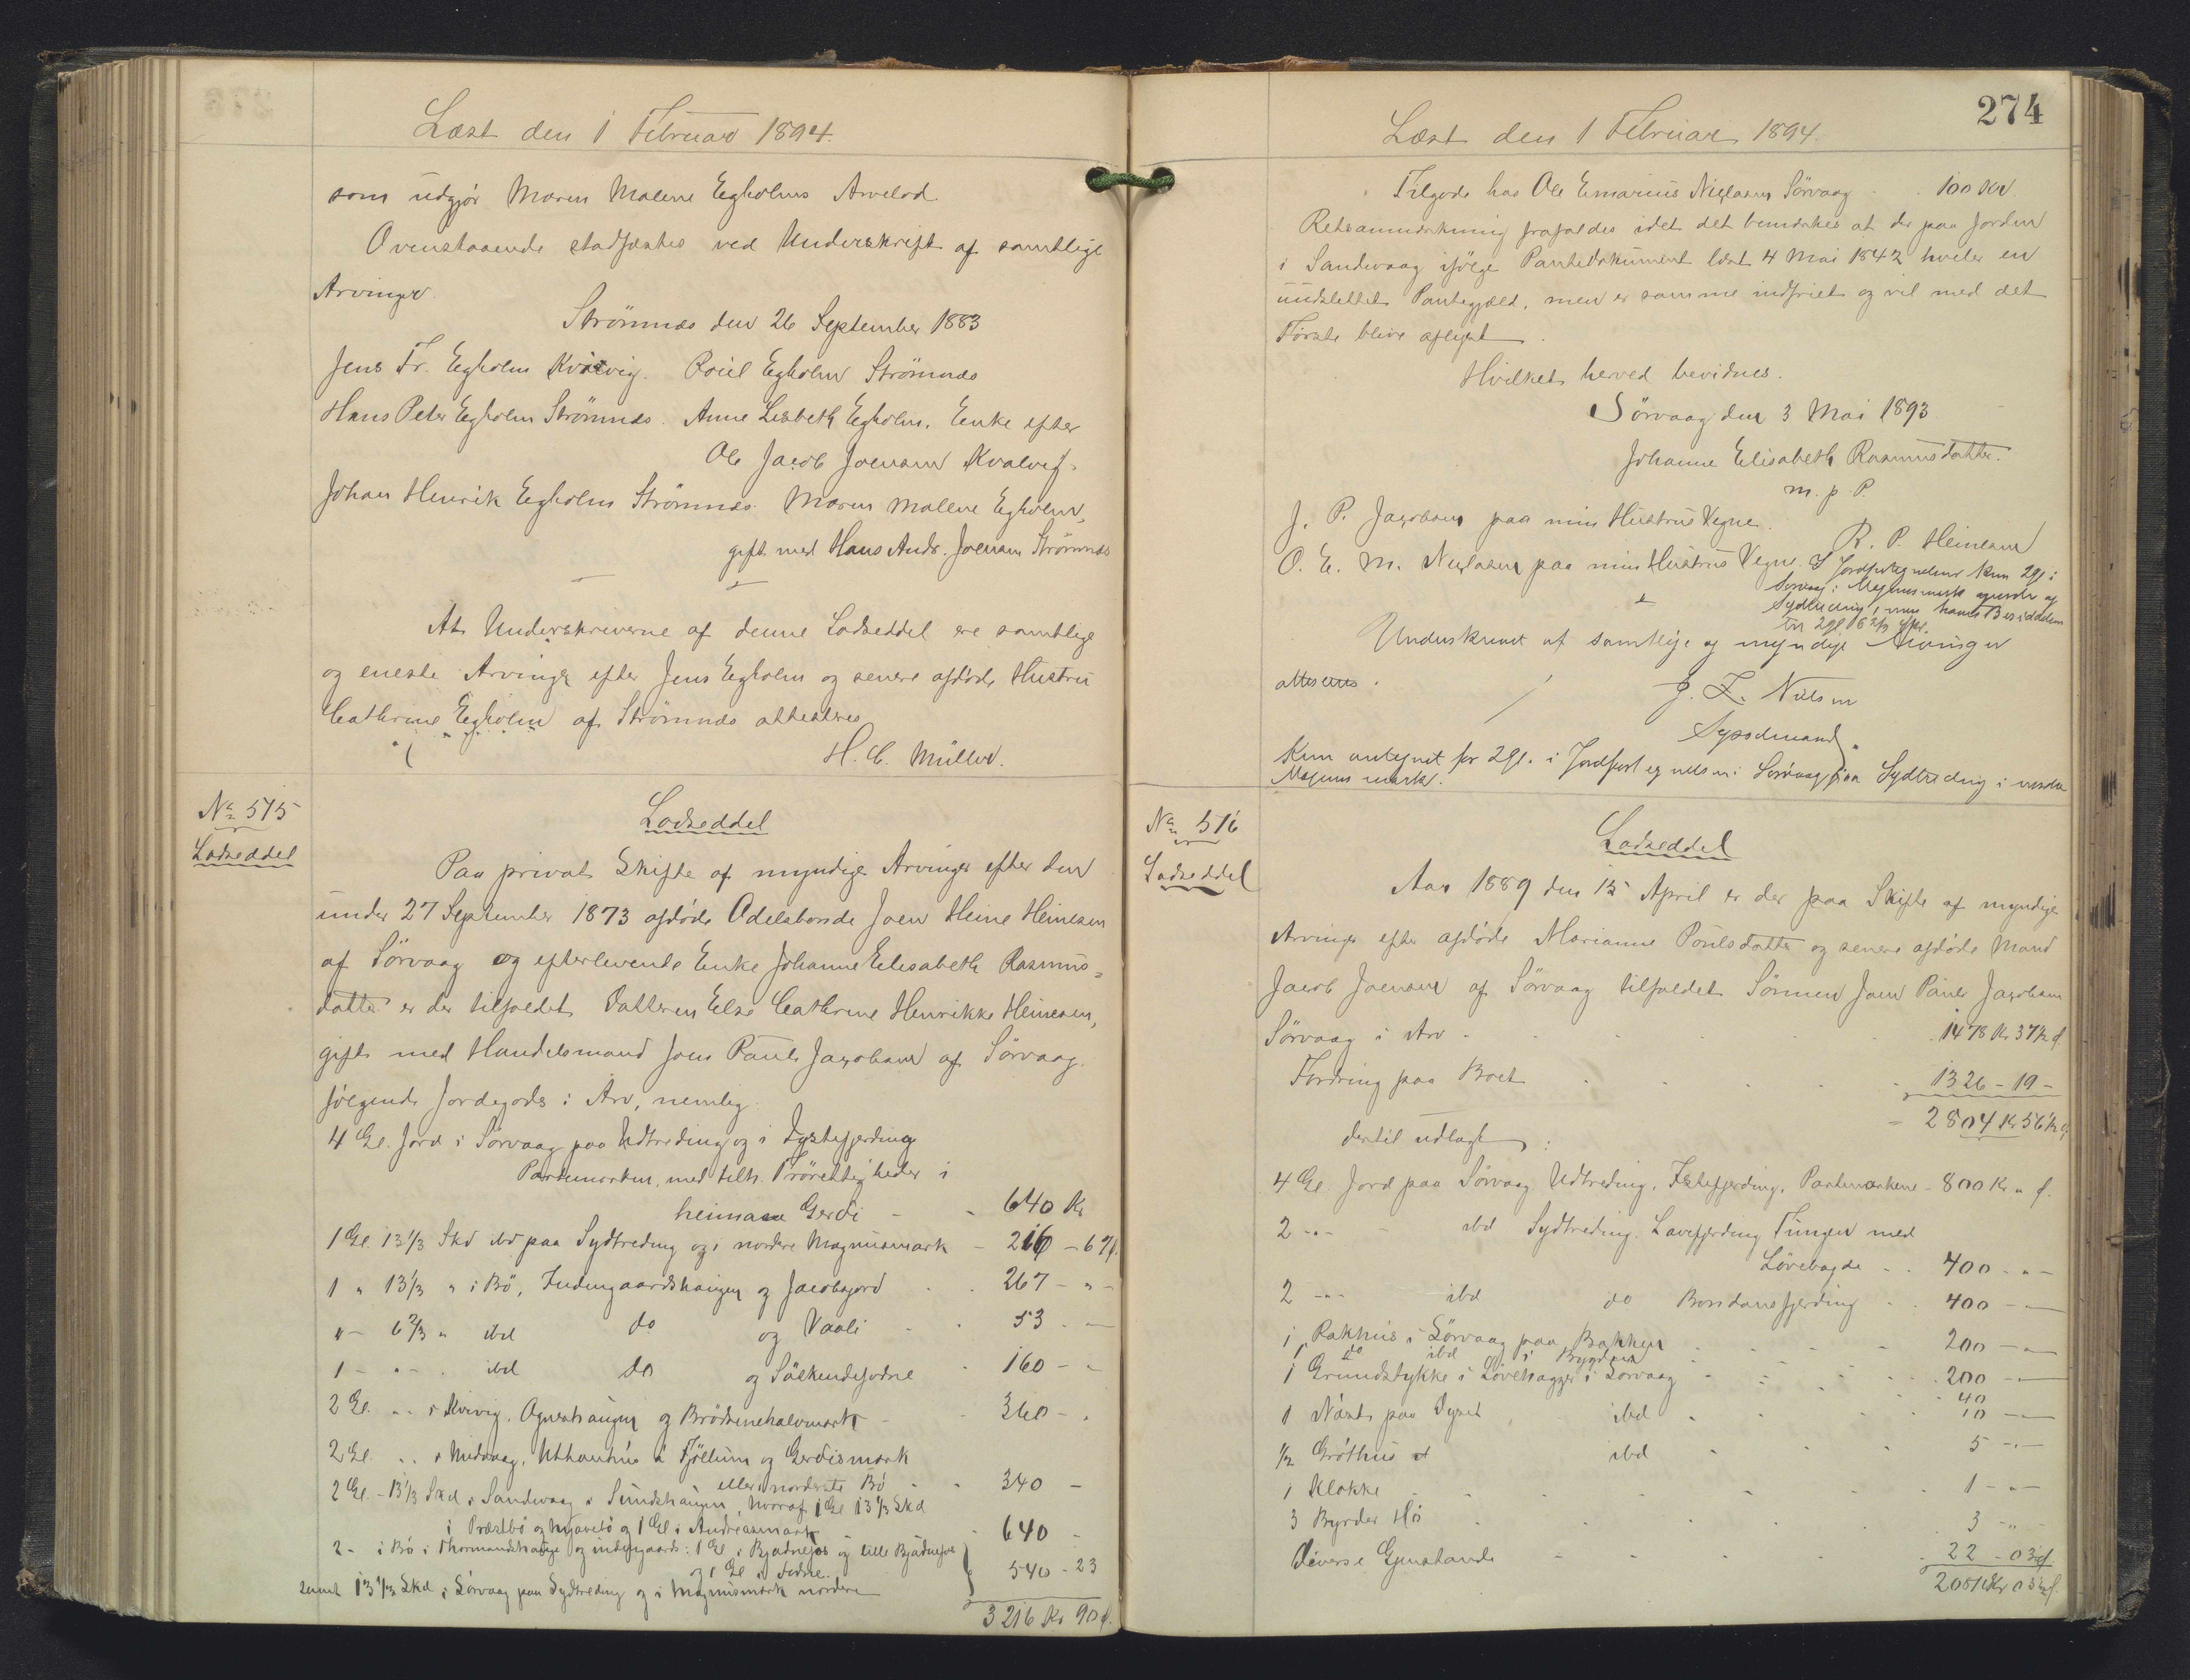 Læst den 1 Februar 1894.
som udgjör Maren Malene Egholms Arvelod.
Ovenstaaende stadfæstes ved Underskrift af samtlige
Arvinger.
Strömnæs den 26 September 1883
Jens Fr. Egholm Kvivig. Poül Egholm Strömnæs
Hans Peter Egholm Strömnæs. Anne Lisbeth Egholm, Enke efter
Ole Jacob Joensen Kvalvig.
Johan Henrik Egholm Strömnæs. Maren Malene Egholm,
gift med Hans Andr. Joensen Strömnæs
At Underskriverne af denne Lodseddel ere samtlige
og eneste Arvinger efter Jens Egholm og senere afdöde Hustru
Cathrine Egholm af Strömnæs attesteres
H. C. Müller.
No 515
Lodseddel
Lodseddel
Paa privat Skifte af myndige Arvinger efter den
under 27 September 1873 afdöde Odelsbonde Joen Heine Heinesen
af Sörvaag og efterlevende Enke Johanne Elisabeth Rasmus=
datter er der tilfaldet Datteren Else Cathrine Henrikke Heinesen,
gift med Handelsmand Joen Pauli Jacobsen af Sörvaag
fölgende Jordegods i Arv, nemlig:
4 Gl. Jord i Sörvaag paa Udtreding og i Systefjerding
Partemarken, med tilh. Trörettigheder i
heimare Gerdi - - 640 Kr
1 Gl. 13 1/3 Skd ibd paa Sydtreding og i nordre Magnusmark - 216 - 67 ø.
1 " 13 1/3 " i Bö, Indengaardshaugen og Jacobsjord - - 267 - " -
" - 6 2/3 " ibd do og Vaali - - 53 - -
1 - " - . ibd do og Sölkendefodne - 160 - -
2 Gl. " - i Kvivig, Agneshaugen og Brödrenehalvmark - 360 - .
2 Gl. . . i Midvaag, Utkanthus á Fjöllum og Gerdismark
eller norderste Bö - - 340 -
2 Gl. - 13 1/3 Skd i Sandevaag i Sundshaugen, hvoraf 1 Gl 13 1/3 Skd
i Præstbö og Mjavebö og 1 Gl i Andreasmark - 640 -
2 - i Bö i Thormandshauge og indengaards: 1 Gl i Bjadnefos og lille Bjadnefos
og 1 Gl i Fodne. } 540 - 23
samt 13 1/3 Skd i Sörvaag paa Sydtreding og i Magnusmark nordere
3216 Kr 90 ø.
274
Læst den 1 Februar 1894.
Tilgode har Ole Emarius Niclasen Sörvaag - . 100 Kr
Retsanmærkning frafaldes idet det bemærkes at der paa Jorden
i Sandevaag ifölge Pantedokument læst 4 Mai 1842 hviler en
uudslettet Pantegjæld, men er samme indfriet og vil med det
Förste blive aflyst.
Hvilket herved bevidnes.
Sörvaag den 3 Mai 1893
Johanne Elisabeth Rasmusdatter.
m. p. P.
J. P. Jacobsen paa min Hustrus Vegne.
R. P. Heinesen
O. E. M. Niclasen paa min Hustrus Vegne. I Jordfortegnelsen kun 2 gl i
Sörvaag i Magnusmark nordre og
Sydtreding, men hans Besiddelse
er 2 gl 6 2/3 Skd.
Underskrevet af samtlige og myndige Arvinger
attesteres.
J. Z. Nielsen
Sysselmand
Kun antegnet for 2 gl. i Jordfortegnelsen i Sörvaag paa Sydtreding i nordre
Magnus mark.
No 516
Lodseddel
Lodseddel
Aar 1889 den 15 April er der paa Skifte af myndige
Arvinger efter afdöde Marianne Poulsdatter og senere afdöde Mand
Jacob Joensen af Sörvaag tilfaldet Sönnen Joen Pauli Jacobsen
Sörvaag i Arv - 1478 Kr 37 1/2 ø.
Fordring paa Boet - 1326 - 19 -
- 2804 Kr 56 1/2 ø
dertil udlagt:
4 Gl. Jord paa Sörvaag Udtreding, Systefjerding, Partemarkene - 800 Kr " ø.
2 - " - ibd Sydtreding. Lavefjerding Tungen med
Lövehagde - . 400 - " -
2 - " - ibd do Bondansfjerding - . 400 - -
1 Pakhus i Sörvaag paa Bakken - 200 - -
1 do ibd i Bygden - 200 - -
1 Grundstykke i Lövehagge i Sörvaag - 40
1 Nöst paa Dyret ibd - 10 - -
1/2 Gróthus ibd - 5 - -
1 Klokke - 1 - " -
3 Byrder Hö - 3 - "
Diverse Gjenstande - 22 - 03 ø.